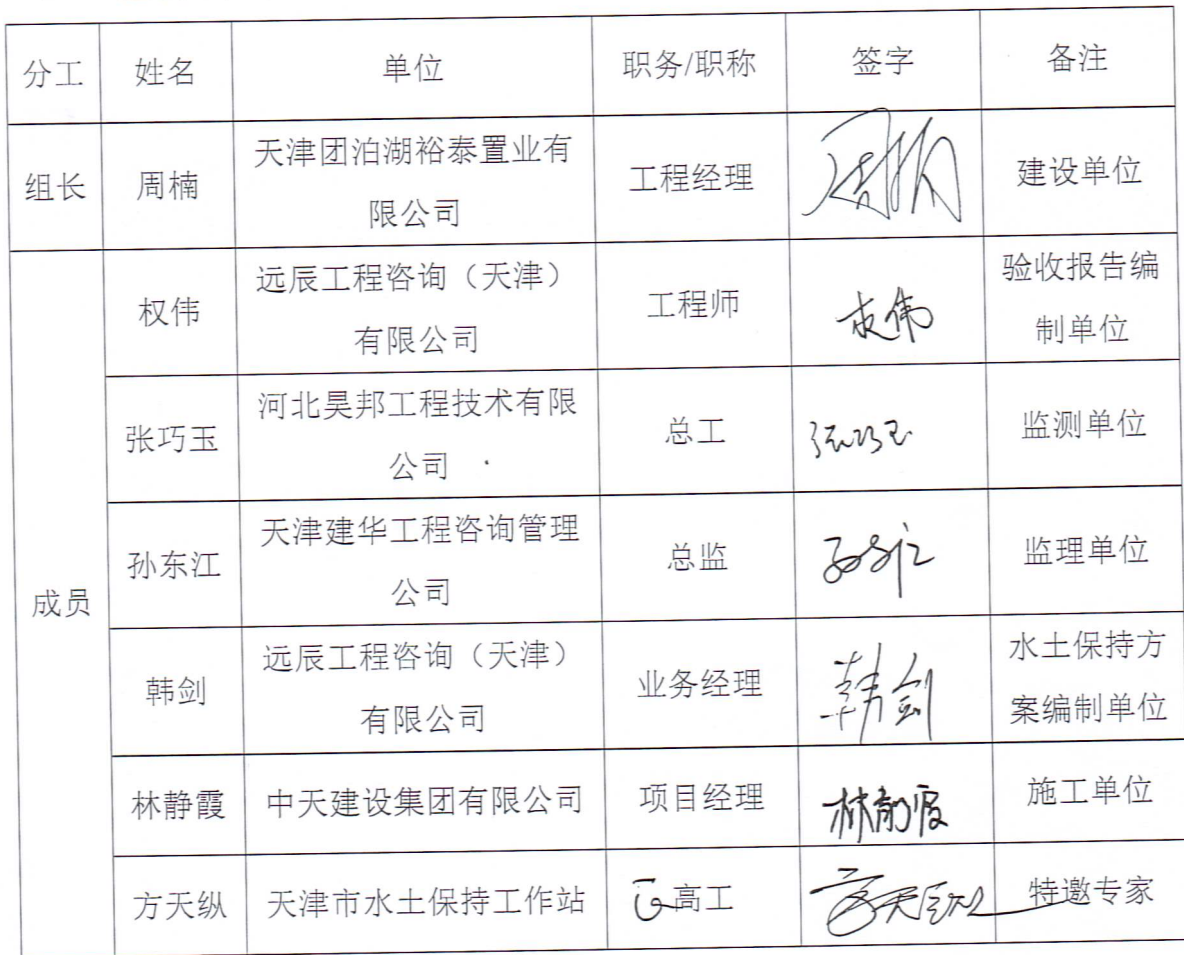 分工 姓名 单位 职务/职称 签字 备注
组长 周楠 天津团泊湖裕泰置业有 工程经理 周楠 建设单位
限公司
成员
权伟 远辰工程咨询（天津） 工程师 权伟 验收报告编
有限公司 制单位
张巧玉 河北昊邦工程技术有限 总工 张巧玉 监测单位
公司
孙东江 天津建华工程咨询管理 总监 孙东江 监理单位
公司
韩剑 远辰工程咨询（天津） 业务经理 韩剑 水土保持方
有限公司 案编制单位
林静霞 中天建设集团有限公司 项目经理 林静霞 施工单位
方天纵 天津市水土保持工作站 正高工 方天纵 特邀专家